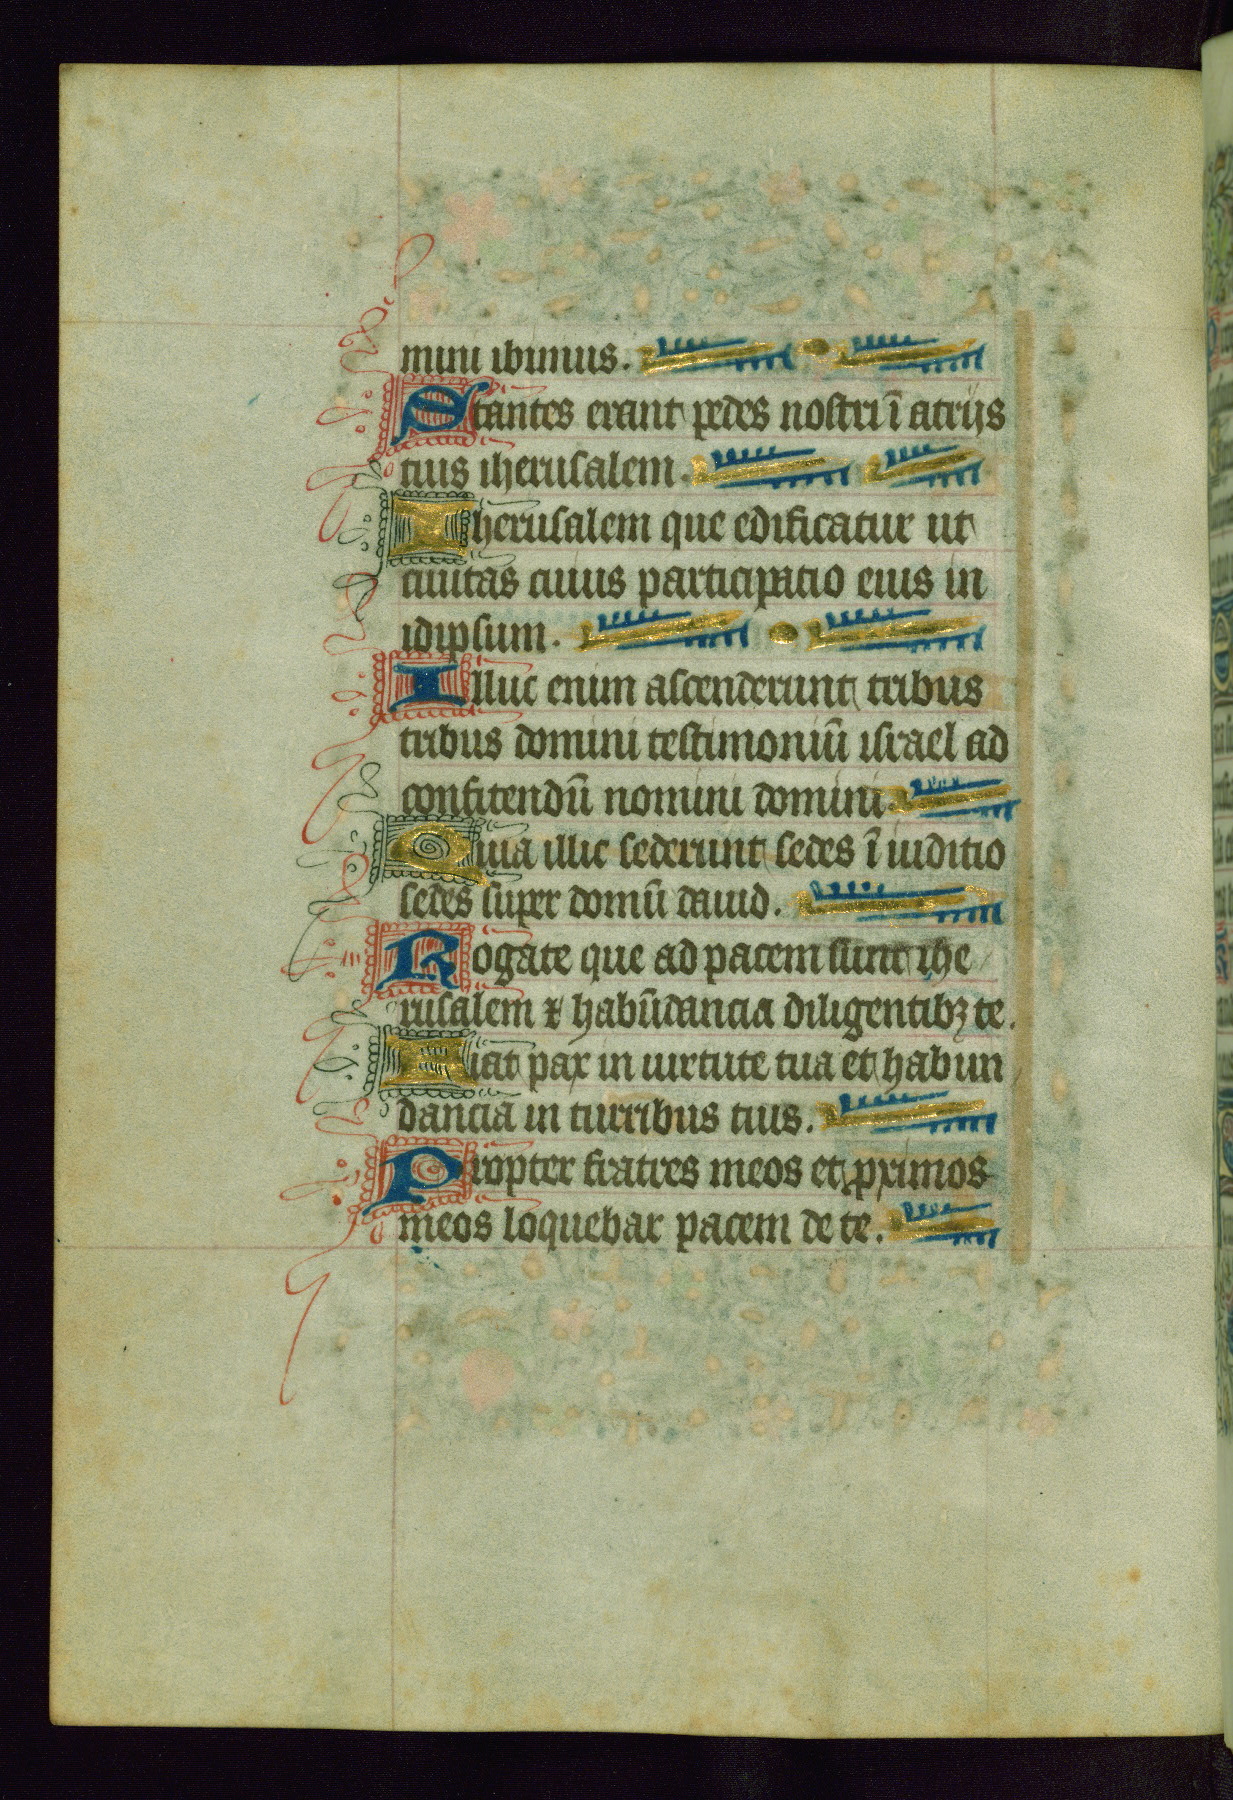 mini ibimus.
Stantes erant pedes nostri ī atrijs
tuis iherusalem.
Iherusalem que edificatur ut
ciuitas cuius participatio eius in
idipsum.
Illuc enim ascenderunt tribus
tribus domini testimoniū israel ad
confitendū nomini domini.
Quia illic sederunt sedes ī iuditio
sedes super domū dauid.
Rogate que ad pacem sunt ihe
rusalem ⁊ habūdancia diligentibꝫ te.
Fiat pax in uirtute tua et habun
dancia in turribus tuis.
Propter fratres meos et pximos
meos loquebar pacem de te.